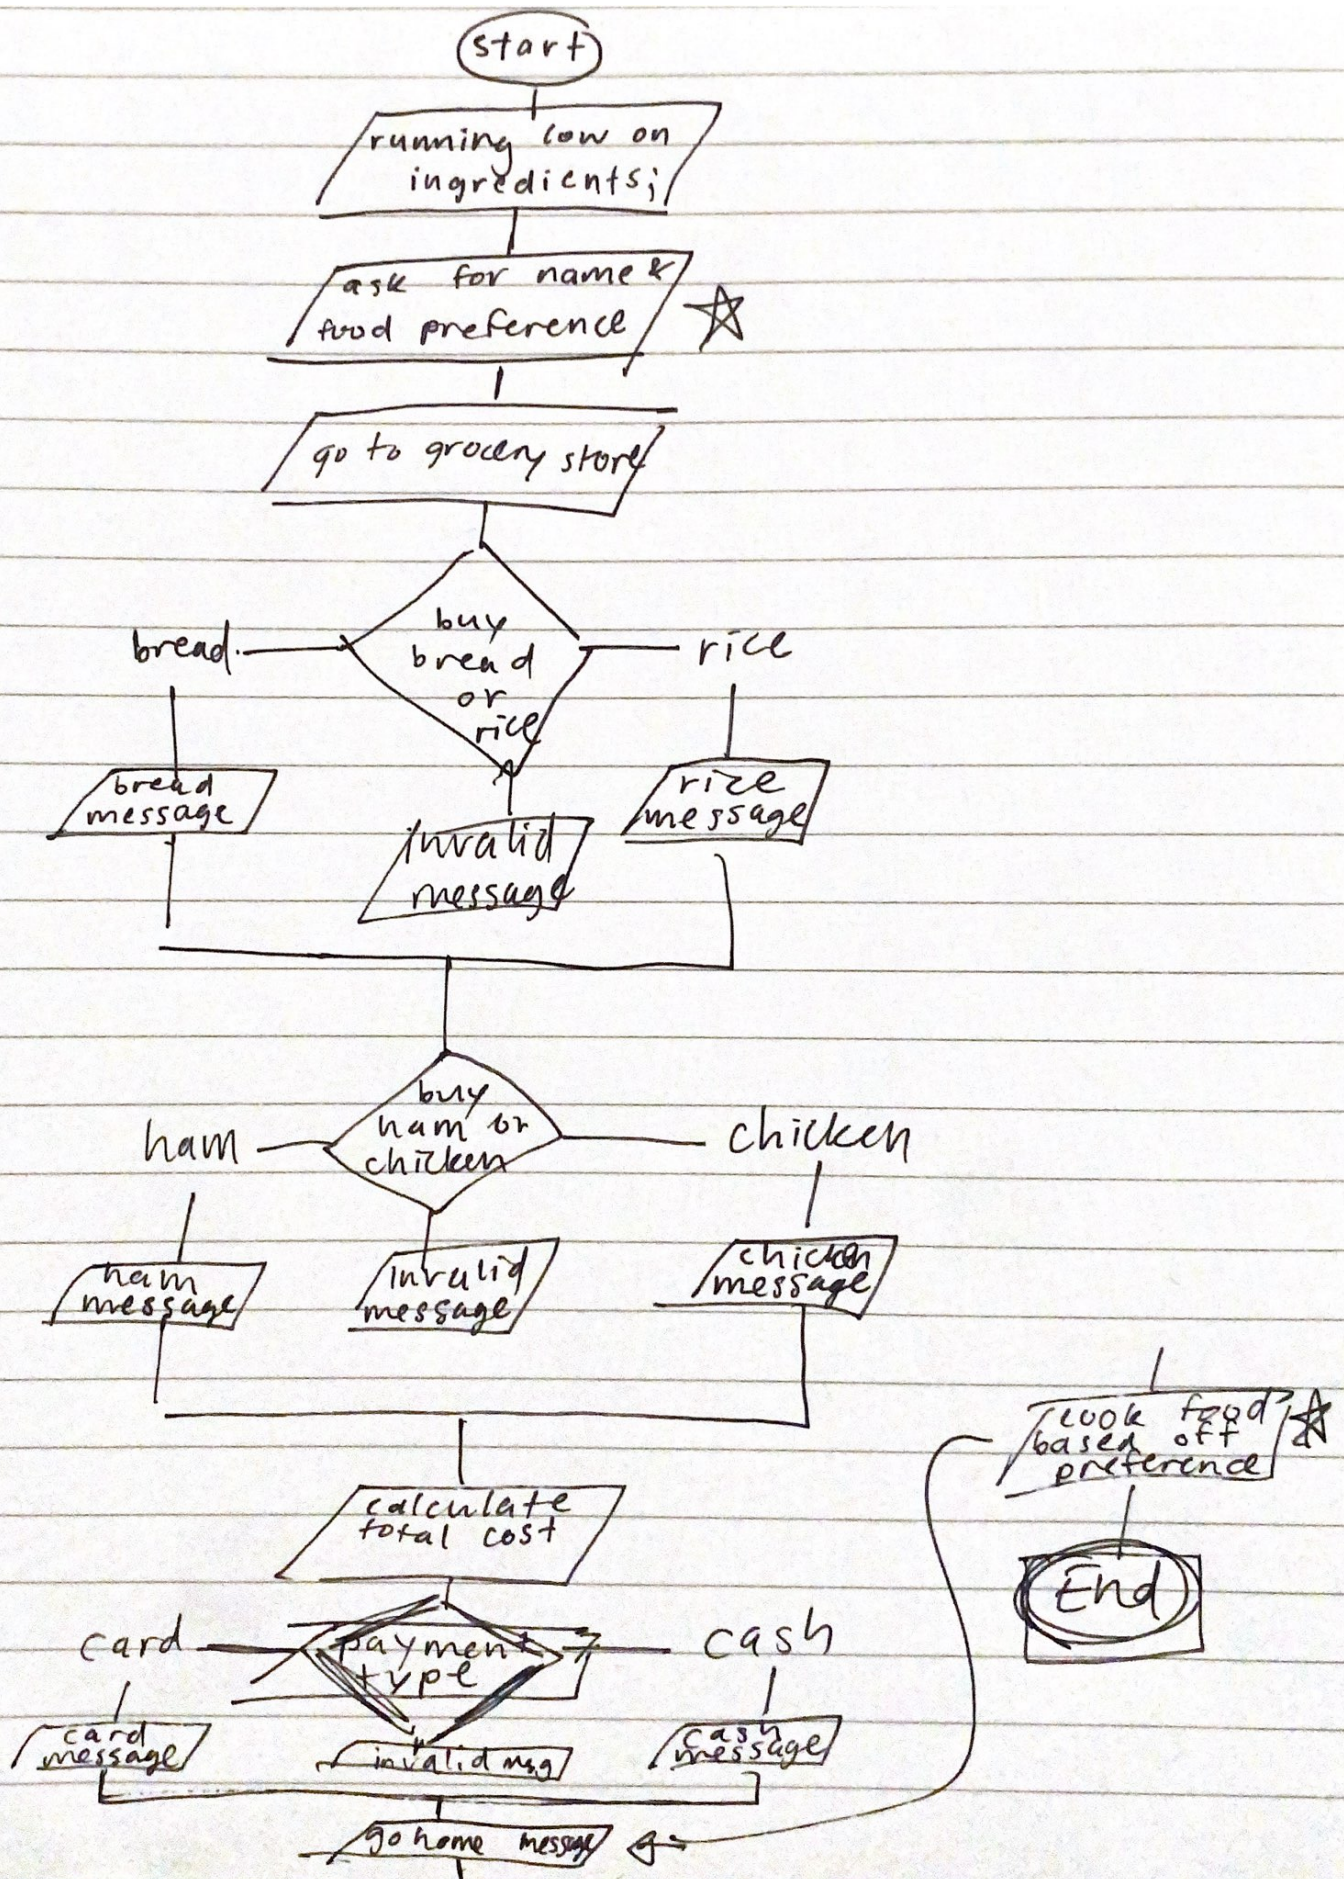 start
running low on
ingredients;
ask for name &
food preference
go to grocery store
buy
bread
or
rice
bread.
rice
bread
message
invalid
message
rice
message
buy
ham or
chicken
ham
chicken
ham
message
invalid
message
chicken
message
calculate
total cost
payment
type
card
cash
card
message
invalid msg
cash
message
go home message
cook food
based off
preference
End